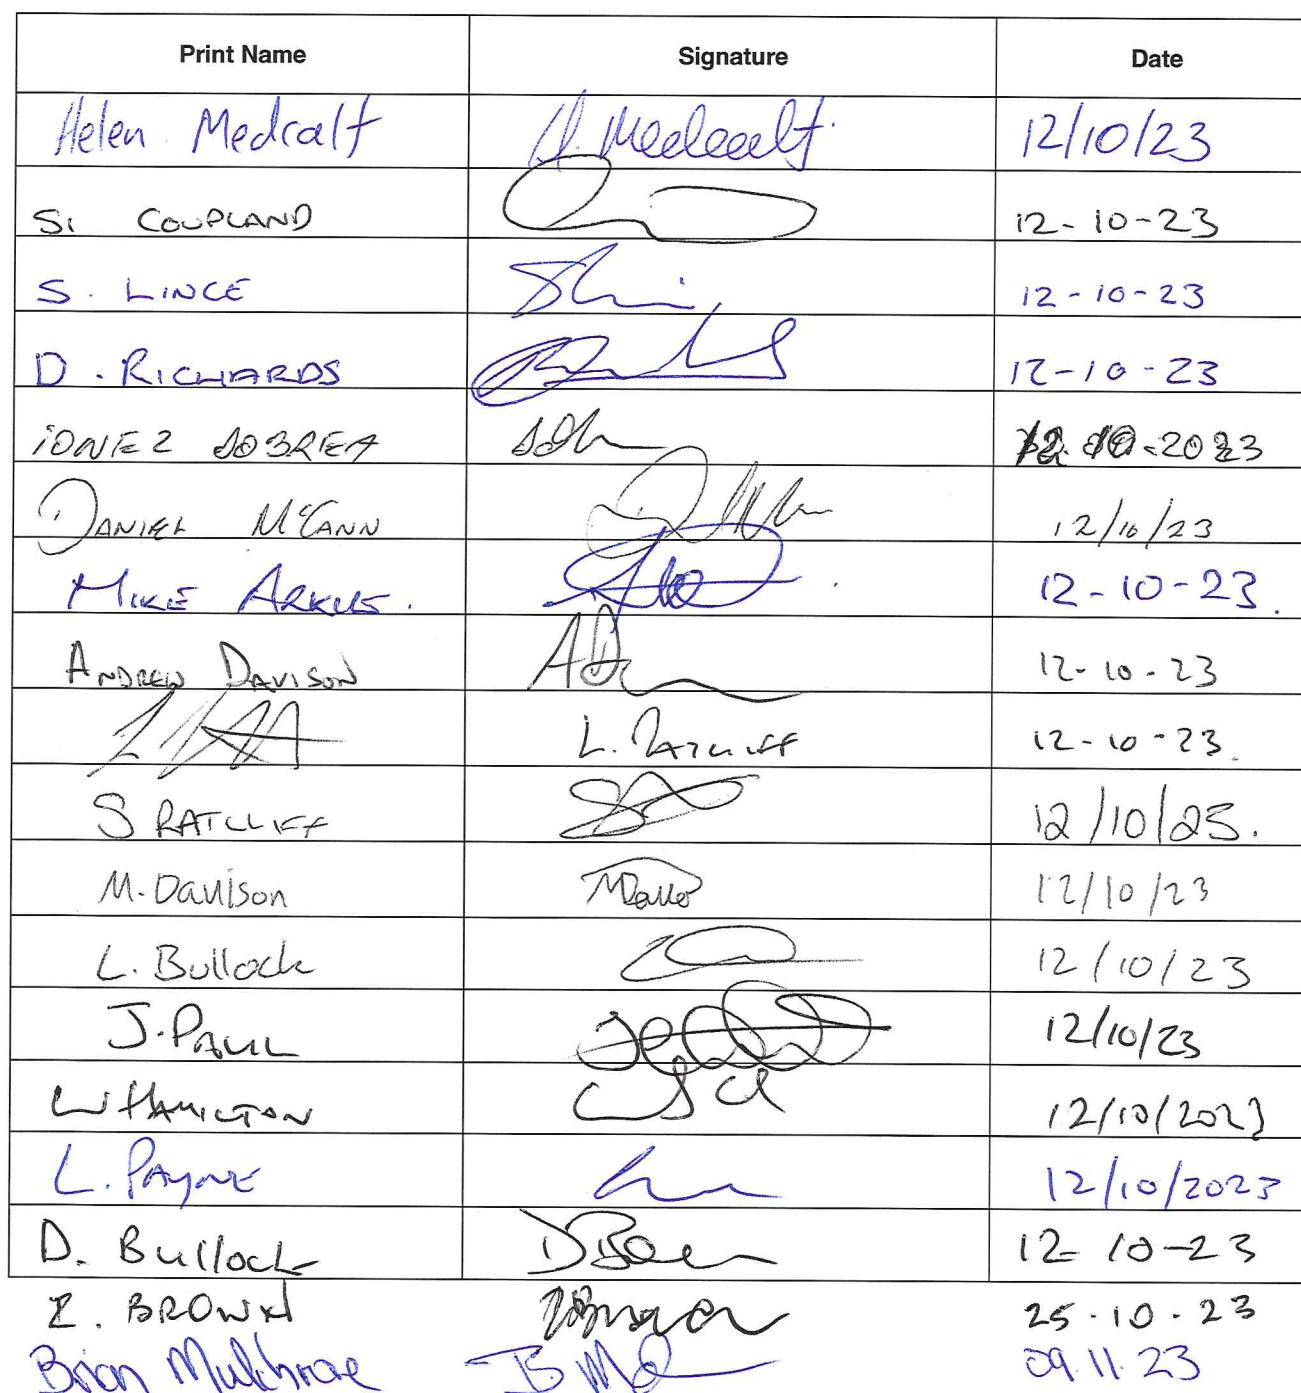 Print Name Signature Date
Helen Medcalf H. Medcalf. 12/10/23
Si COUPLAND 12-10-23
S. LINCE 12-10-23
D. RICHARDS 12-10-23
iONEZ DOBREA 12.10.2023
DANIEL McCANN 12/10/23
MIKE ARKUS. 12-10-23.
ANDREW DAVISON AD 12-10-23
L. RATCLIFF 12-10-23.
S RATCLIFF 12/10/23.
M. Davison 12/10/23
L. Bullock 12/10/23
J. PAUL 12/10/23
W HAMILTON 12/10/2023
L. PAYNE 12/10/2023
D. Bullock 12-10-23
Z. BROWN 25.10.23
Brian 09.11.23